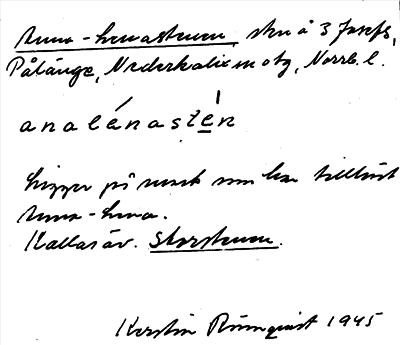 Anna-Lenastenen, sten å 3 Josefs,
Pålänge, Nederkalix m otg, Norrb. l.
analénastén
Ligger på mark som har tillhört
Anna-Lena.
Kallas äv. Storstenen.
Kerstin Rönnquist 1945